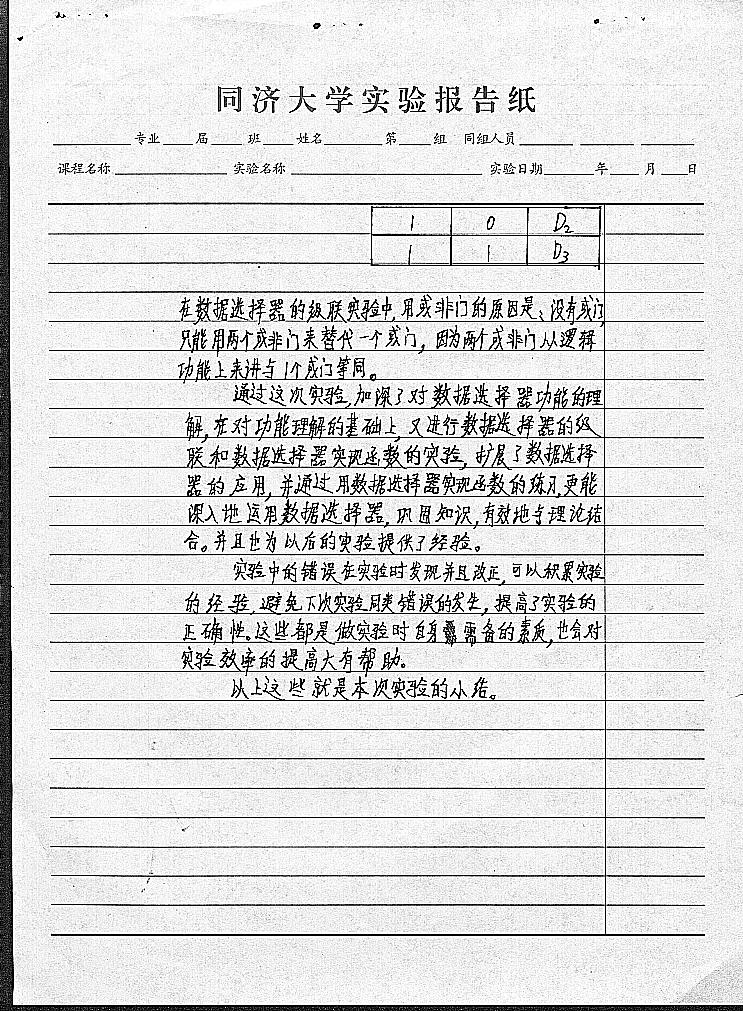 同济大学实验报告纸
专业 届 班 姓名 第 组 同组人员
课程名称 实验名称 实验日期 年 月 日
1 0 D2
1 1 D3
在数据选择器的级联实验中,用或非门的原因是:没有或门,
只能用两个或非门来替代一个或门,因为两个或非门从逻辑
功能上来讲与1个或门等同。
通过这次实验,加深了对数据选择器功能的理
解,在对功能理解的基础上,又进行数据选择器的级
联和数据选择器实现函数的实验,扩展了数据选择
器的应用,并通过用数据选择器实现函数的练习,更能
深入地运用数据选择器,巩固知识,有效地与理论结
合。并且也为以后的实验提供了经验。
实验中的错误在实验时发现并且改正,可以积累实验
的经验,避免下次实验同类错误的发生,提高了实验的
正确性。这些都是做实验时自身需备的素质,也会对
实验效率的提高大有帮助。
以上这些就是本次实验的小结。